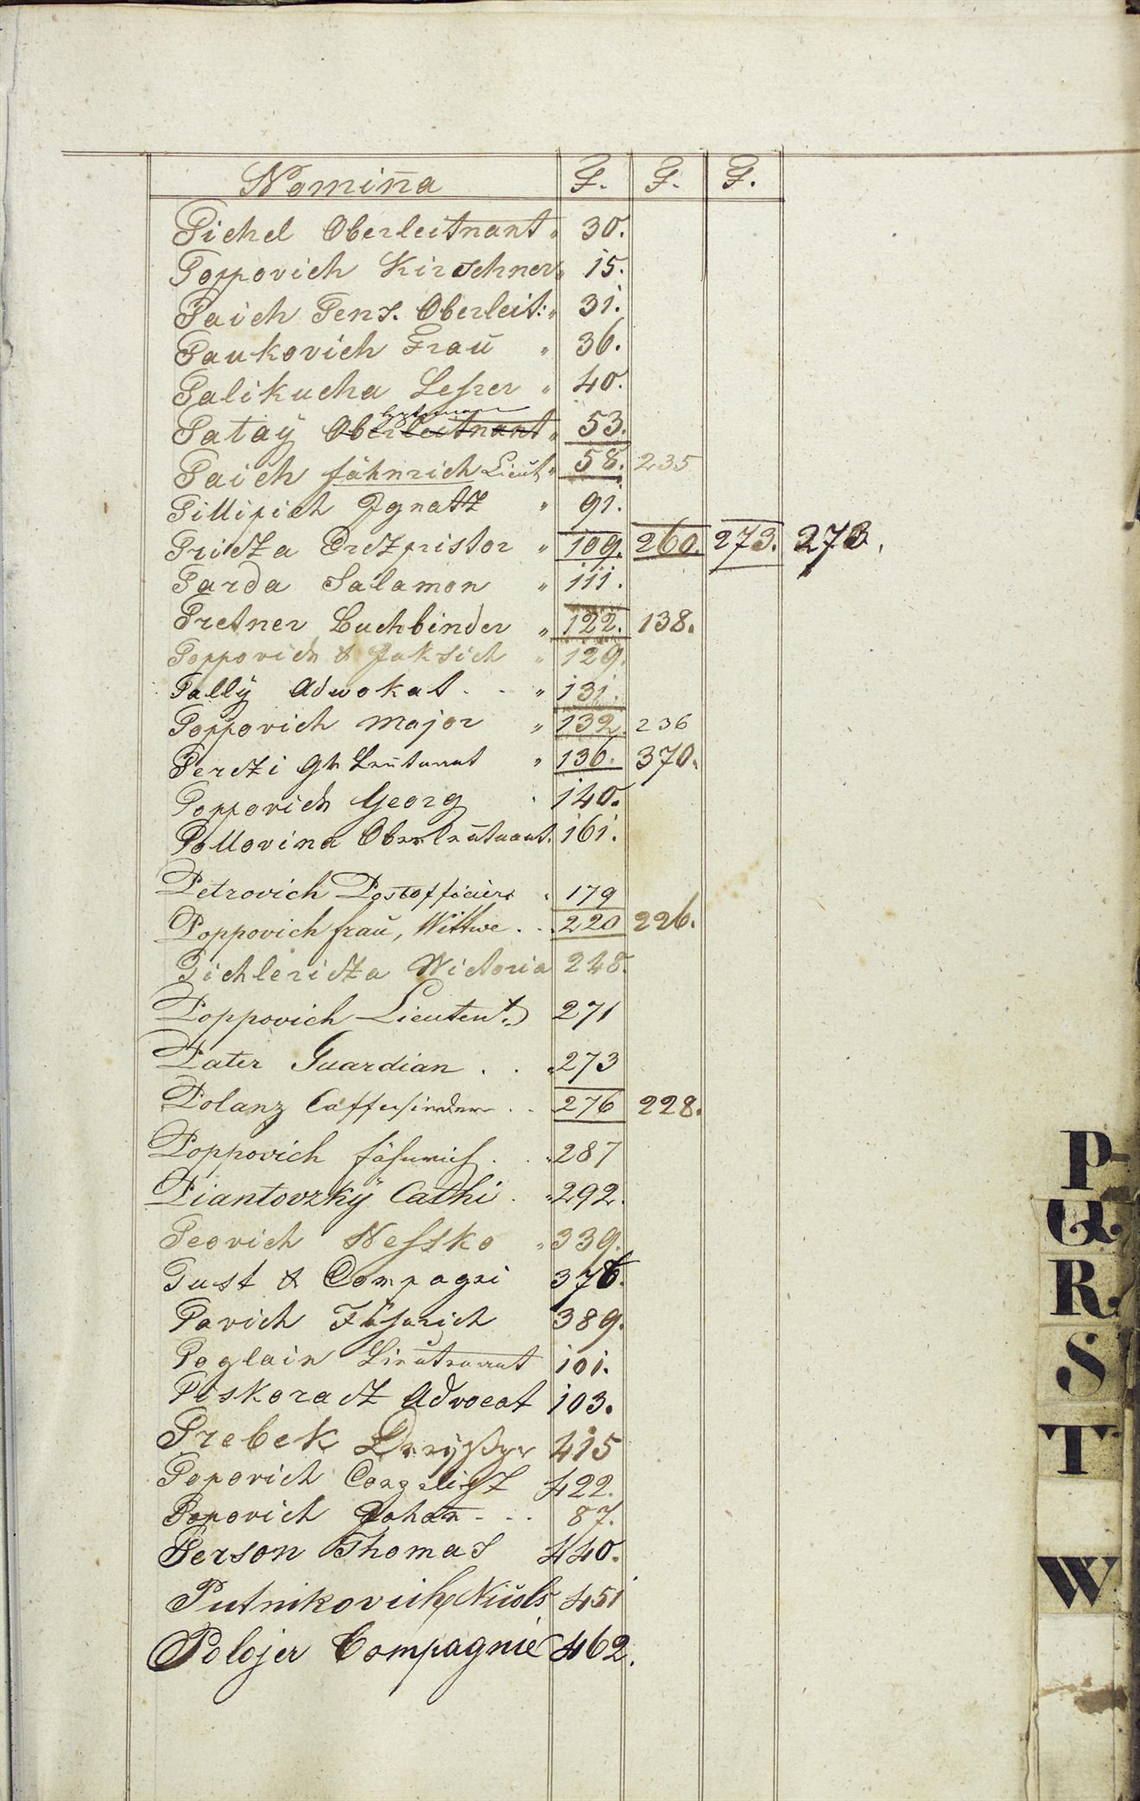 Nomina F. F. F.
Pichel Oberleitnant " 30.
Poppovich Kirschner " 15.
Paich Pens. Oberleit: " 31.
Paukovich Frau " 36.
Palikucha " 40.
Pataÿ Oberleitnant " 53.
Paich fähnrich Lieut " 58. 235
Pillipich Ignatz " 91.
109. 260. 273. 273.
Parda Salamon " 111.
Pretner Buchbinder " 122. 138.
Poppovich & Jaksich " 129.
Pallÿ Adwokat . . " 131.
Poppovich Major " 132. 236
Perczi Leutenant " 136. 370.
Poppovich Georg 140.
Pollovina Oberleutnant. 161.
Petrovich Postofficier 179
Poppovich frau, Wittwe . . 220 226.
Pichlericza Victoria 248.
Poppovich Lieutent. 271
Pater Guardian . . . 273
Polanz Caffesieder . . 276 228.
Poppovich fähnrich . . 287
Piantovzkÿ Cathi . 292.
Peovich Nessko " 339.
Pust & Compagni 376.
Pavich Fähnrich 389.
Poglain Lieutenant 101.
Piskoracz Advocat 103.
Prebek 415
Popovich 422.
Popovich Johan - . . 87.
Person Thomas 440.
Putnikovich 451
Polojer Compagnie 462.
P
Q
R
S
T
W